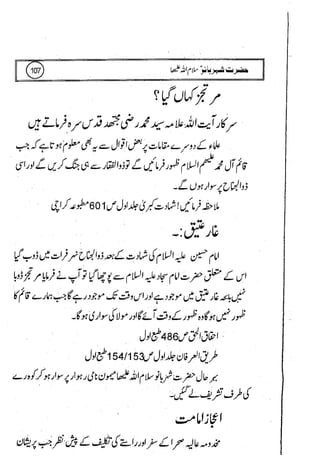 107
حضرت شہر بانو سلام اللہ علیھا
مرتجز کہاں گیا؟
سرکار آیت اللہ علامہ سید محمد رضی مجتھد قدس سرہ فرماتے ہیں
علماء کے دوسرے مقامات پر بعض اقوال سے یہ بھی معلوم ہوتا ہے کہ جب
قائم آل محمد علیھم السلام ظہور فرمائیں گے تو ذوالفقار سے ہی جنگ کریں گے اور اسی
ذوالجناح پر سوار ہوں گے۔
ملاحظہ فرمائیں! شہادت کبریٰ جلد اول ص 601 مطبوعہ کراچی
غار عتیق:۔
امام حسین علیہ السلام کی شہادت کے بعد ذوالجناح نہر فرات میں ڈوب گیا
اس کے متعلق حضرت امام سجاد علیہ السلام سے پوچھا گیا تو آپ نے فرمایا مرتجز ڈوبا
نہیں بلکہ غار عتیق میں موجود ہے اور اس وقت تک موجود رہے گا جب ہمارے قائم کا
ظہور نہیں ہوگا وہ ظہور کے وقت آئے گا اور مولا کی سواری ہوگا۔
احقاق الحق ص 486 طبع اول
طریق العرفان جلد اول ص 154/153 طبع اول
بہر حال حضرت شہر بانو سلام اللہ علیھا میمون نامی رہوار پر سوار ہو کر کوہ رے
کی طرف تشریف لے گئیں۔
اعجاز امامت
مخدومہ عالیہ صحرا کے سفر اور راستے کی تکلیف کے پیش نظر جب پریشان